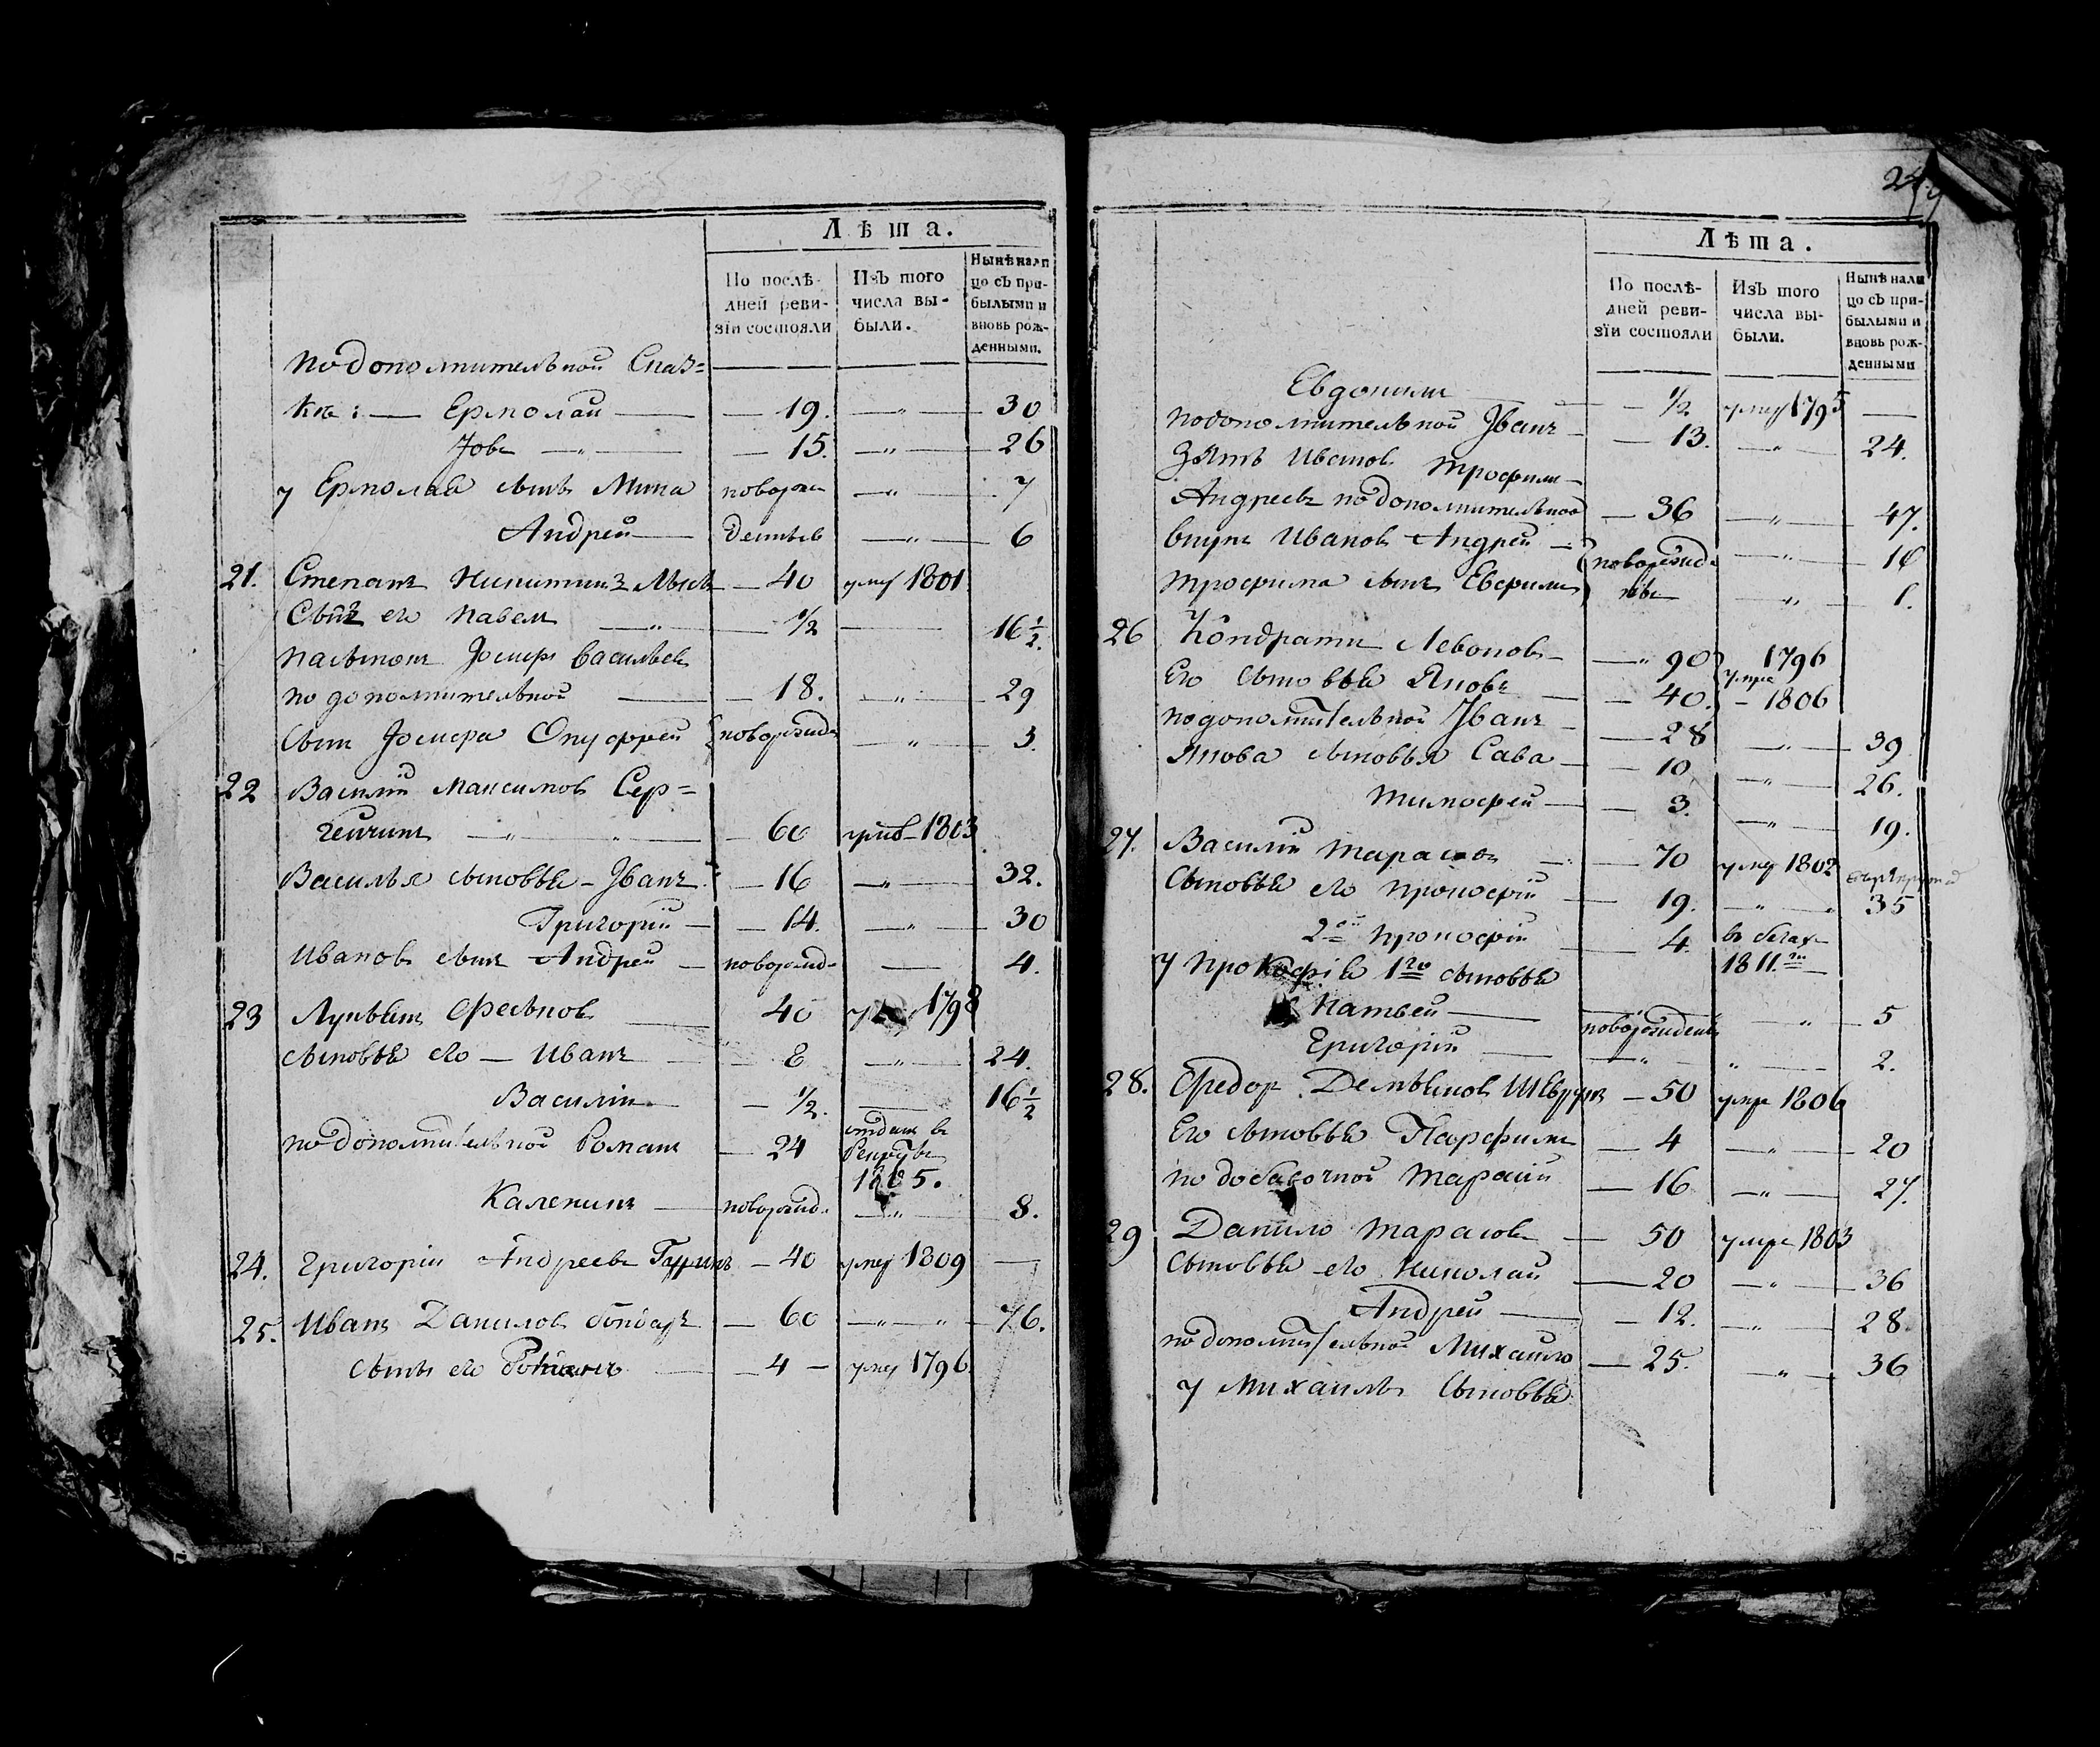 Лѣта.
По послѣ-
дней реви-
зїи состояли
Изъ того
числа вы-
были.
Нынѣ нали
цо съ при-
былыми и
вновь рож-
денными.
по дополнительной Сказ=
кѣ: — Ермолай — 19. —"— 30
Іовъ —"— 15. —"— 26
у Ермолая сынъ Мина новорож —"— 7
Андрей — —"— 6
21. Степанъ Никитинъ — 40 умер 1801
Сынъ его Павел —"— ½ — 16½.
Іосифъ Васильевъ
по дополнительной — 18. —"— 29
Сынъ Іосифа Онуфрей новорожд —"— 3.
22 Василій Максимовъ Сер=
—"— 60 1803
Василья сыновья - Іванъ — 16 —"— 32.
Григорій — 14. —"— 30
Ивановъ сынъ Андрей — новорожд — 4.
23 40 1798
сыновья его — Иванъ 8 —"— 24.
Василій — ½. — 16½
по дополнительной Романъ — 24 отданъ въ
рекруты
1805.
Каленикъ — новорожд. —"— 8.
24. Григорій Андреевъ — 40 умер 1809 —
25. Иванъ Даниловъ — 60 —"—"— 76.
сынъ его — 4 — умер 1796.
Лѣта.
По послѣ-
дней реви-
зїи состояли
Изъ того
числа вы-
были.
Нынѣ нали
цо съ при-
былыми и
вновь рож-
денными
Евдокимъ — ½ умер 1795 —
по дополнительной Іванъ — 13. —"— 24.
Зять Ивановъ Трофимъ —
Андреевъ по дополнительной — 36 —"— 47.
внукъ Ивановъ Андрей — новорожд —"— 16
Трофима сынъ —"— 1.
26 Кондратій Левоновъ — —"90 1796
Его сыновья Яковъ — 40. умре - 1806
по дополнительной Іванъ — 28 —"— 39
Якова сыновья Сава — 10 —"— 26.
Тимофей — 3. —"— 19.
27. Василій Тарасовъ — 70 умер 1802
Сыновья его Прокофій — 19. "—" 35
2ой Прокофій — 4. въ бегах
1811.го
у Прокофія 1го сыновья
Матвей — новорожденъ —"— 5
Григорій — —"— "— 2.
28. Федор — 50 умре 1806
Его сыновья Парфилъ — 4 —"— 20
по добавочной Тарасий — 16 —"— 27.
29 Данило Тарасовъ — 50 умре 1803
Сыновья его Николай — 20 —"— 36
Андрей — 12. —"— 28.
по дополнительной Михайло — 25. —"— 36
у Михаилы Сыновья